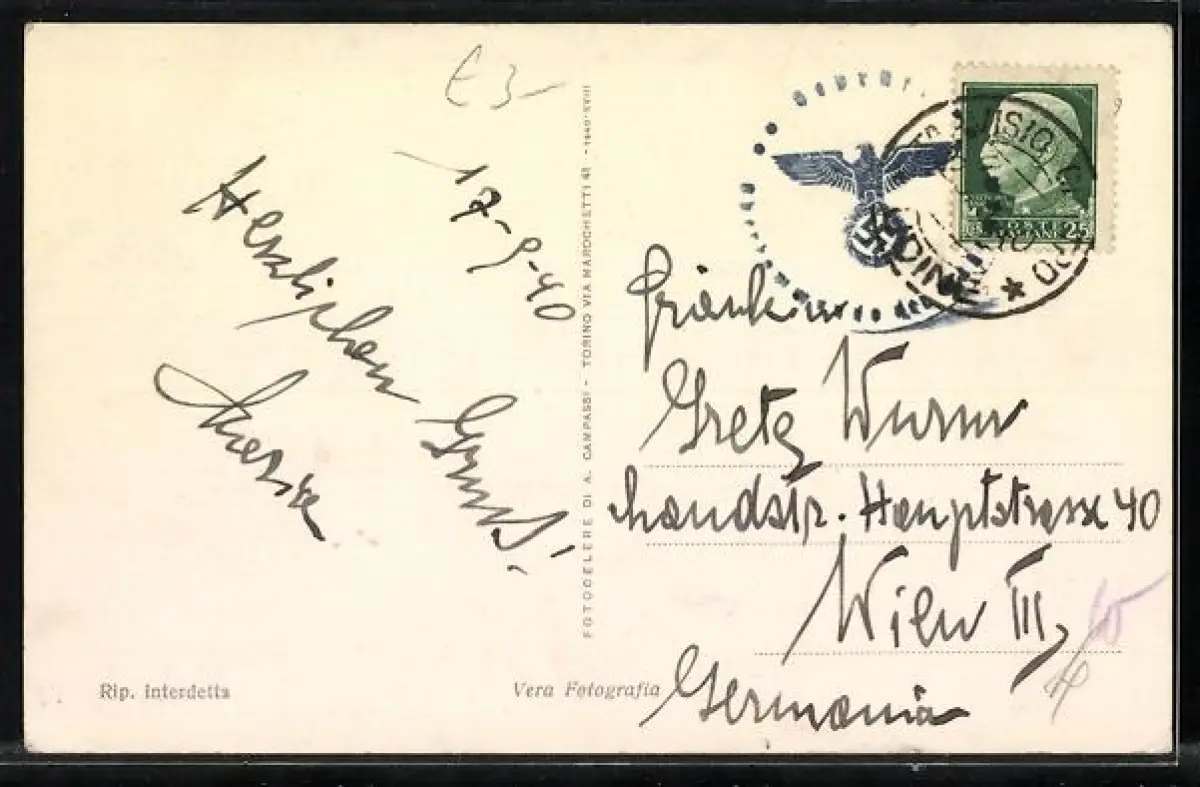 £3-
17-9-40
Herzlichen
Gruß!
FOTOCELERE DI A. CAMPASSI - TORINO VIA MAROCHETTI 41 - 1940-XVIII
Geprüft
UDINE
POSTE
ITALIANE
25
Fräulein
Grete Wurm
Landstr. Hauptstrasse 40
Wien III,
Germania
Rip. interdetta
Vera Fotografia